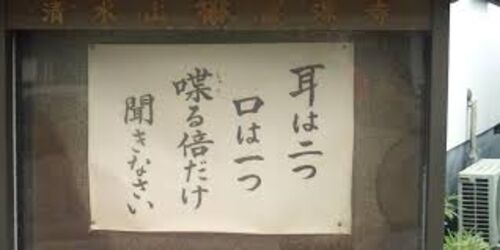 清水山
寺
耳は二つ
口は一つ
喋る倍だけ
聞きなさい